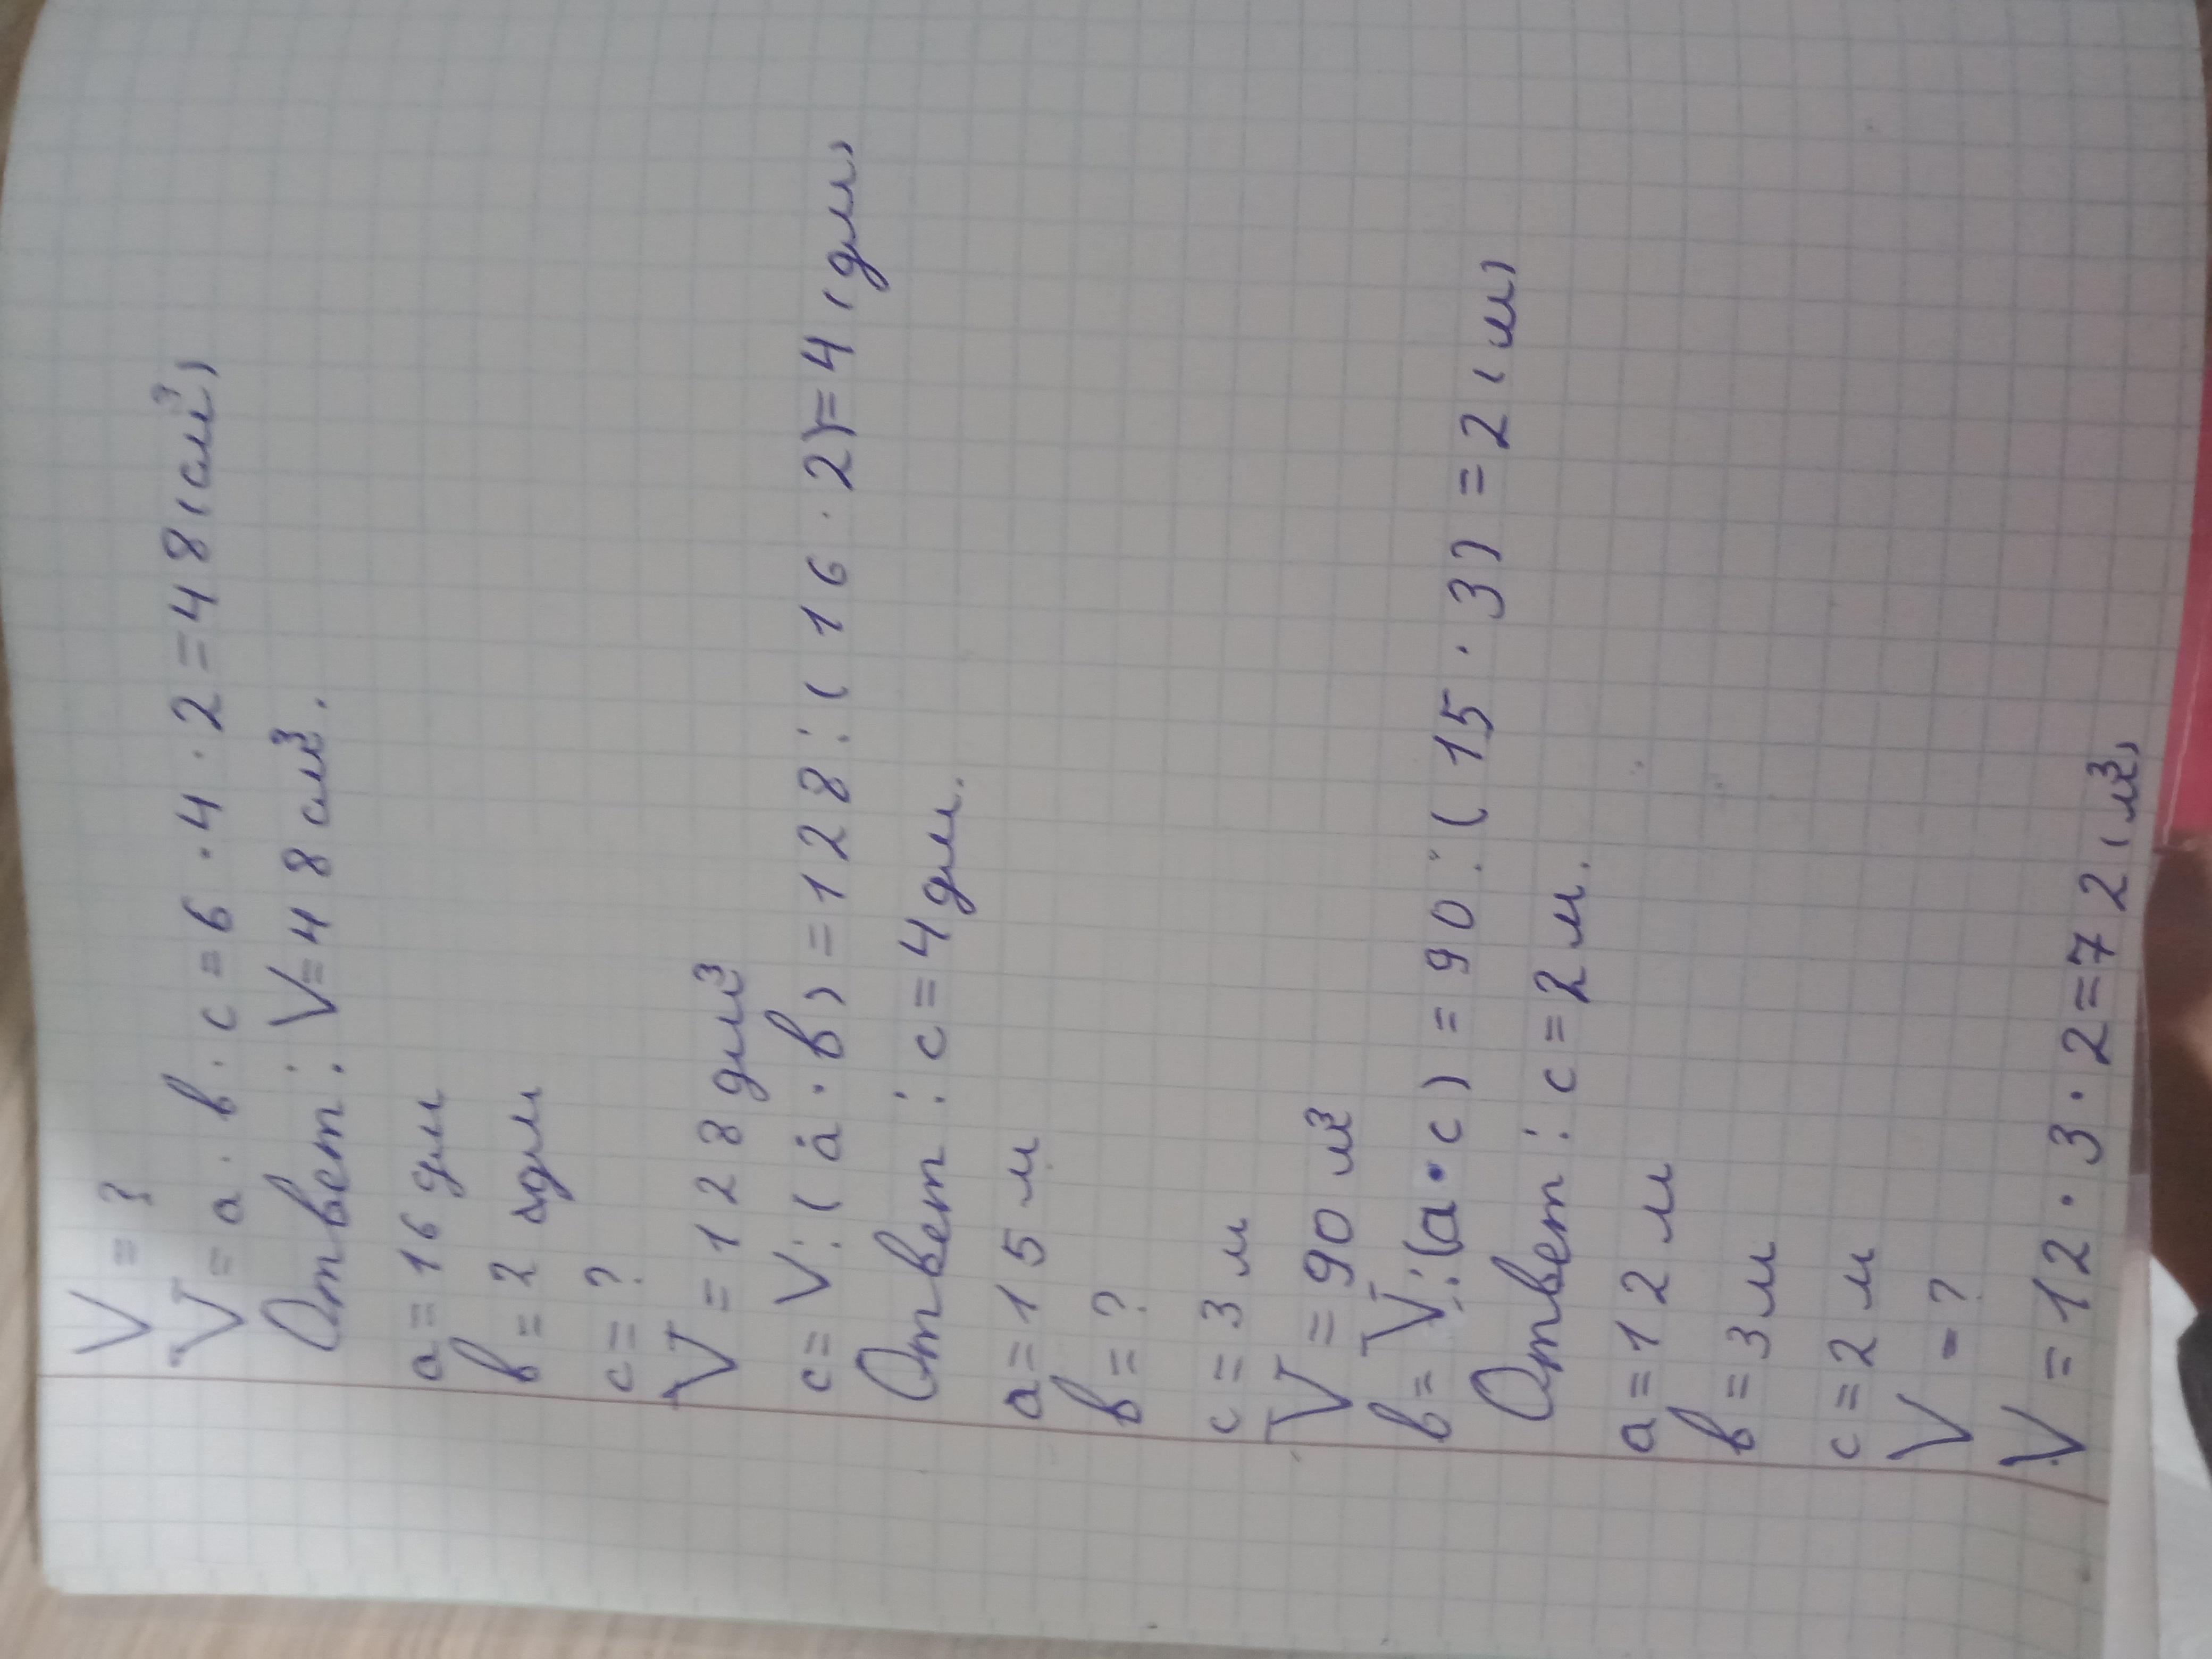 V = ?
V = a · в · c = 6 · 4 · 2 = 48 (см³)
Ответ: V = 48 см³.
a = 16 дм
в = 2 дм
c = ?
V = 128 дм³
c = V : (a · в) = 128 : (16 · 2) = 4 (дм)
Ответ: c = 4 дм.
a = 15 м
в = ?
c = 3 м
V = 90 м³
в = V : (a · c) = 90 : (15 · 3) = 2 (м)
Ответ: c = 2 м.
a = 12 м
в = 3 м
c = 2 м
V - ?
V = 12 · 3 · 2 = 72 (м³)